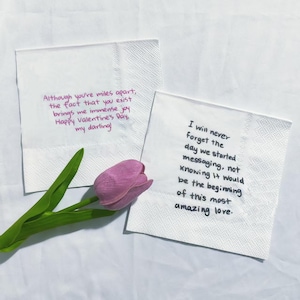 Although you're miles apart,
the fact that you exist
brings me immense joy
Happy Valentine's Day,
my darling!
I will never
forget the
day we started
messaging, not
knowing it would
be the beginning
of this most
amazing love.